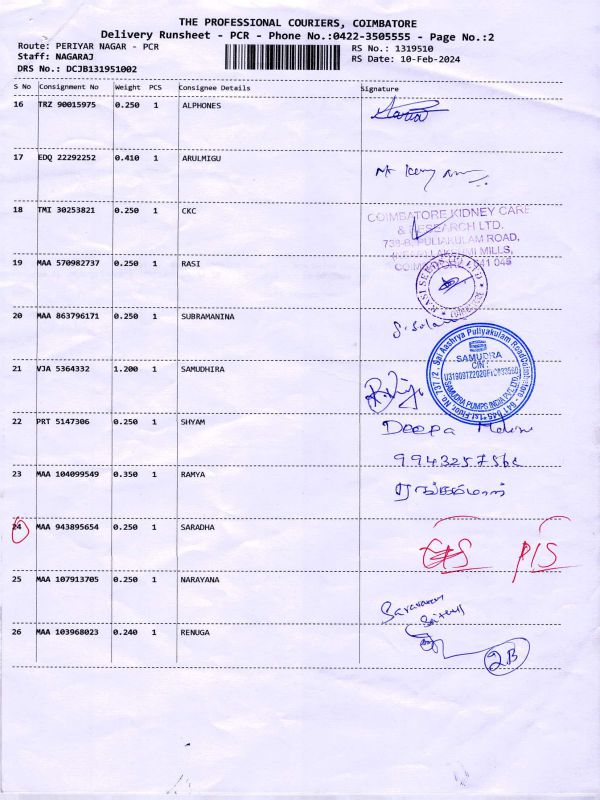 THE PROFESSIONAL COURIERS, COIMBATORE
Delivery Runsheet - PCR - Phone No.:0422-3505555 - Page No.:2
Route: PERIYAR NAGAR - PCR
RS No.: 1319510
Staff: NAGARAJ
RS Date: 10-Feb-2024
DRS No.: DCJB131951002
S No Consignment No Weight PCS Consignee Details Signature
16 TRZ 90015975 0.250 1 ALPHONES
17 EDQ 22292252 0.410 1 ARULMIGU
18 TMI 30253821 0.250 1 CKC
COIMBATORE KIDNEY CARE
& RESEARCH LTD.
PULIAKULAM ROAD,
MILLS,
19 MAA 570982737 0.250 1 RASI
RASI SEEDS (P) LTD
20 MAA 863796171 0.250 1 SUBRAMANINA
21 VJA 5364332 1.200 1 SAMUDHIRA
SAMUDRA
CIN :
SAMUDRA PUMPS INDIA PVT LTD
22 PRT 5147306 0.250 1 SHYAM
Deepa
23 MAA 104099549 0.350 1 RAMYA
24 MAA 943895654 0.250 1 SARADHA
P/S
25 MAA 107913705 0.250 1 NARAYANA
26 MAA 103968023 0.240 1 RENUGA
2B